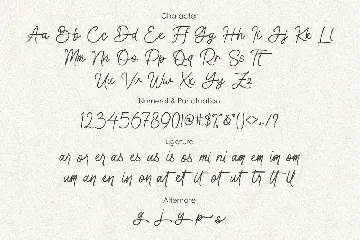 Character
Aa Bb Cc Dd Ee Ff Gg Hh Ii Jj Kk Ll
Mm Nn Oo Pp Qq Rr Ss Tt
Uu Vv Ww Xx Yy Zz
Numeral & Punctuation
1234567890!@#$%^&*()<>.,/?
Ligature
ar or er as es us is os mi ni am em im om
um an en in on at et it ot ut tr tt ll
Alternate
g j y p s